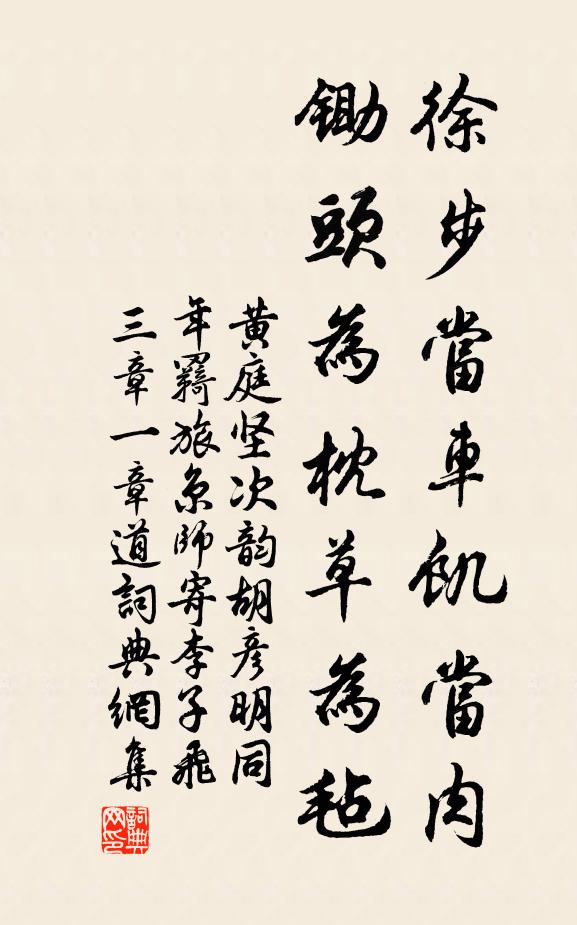 徐步當車飢當肉
鋤頭為枕草為毡
黄庭坚次韵胡彦明同
年羇旅京師寄李子飛
三章一章道詞典網集
詞典
网印